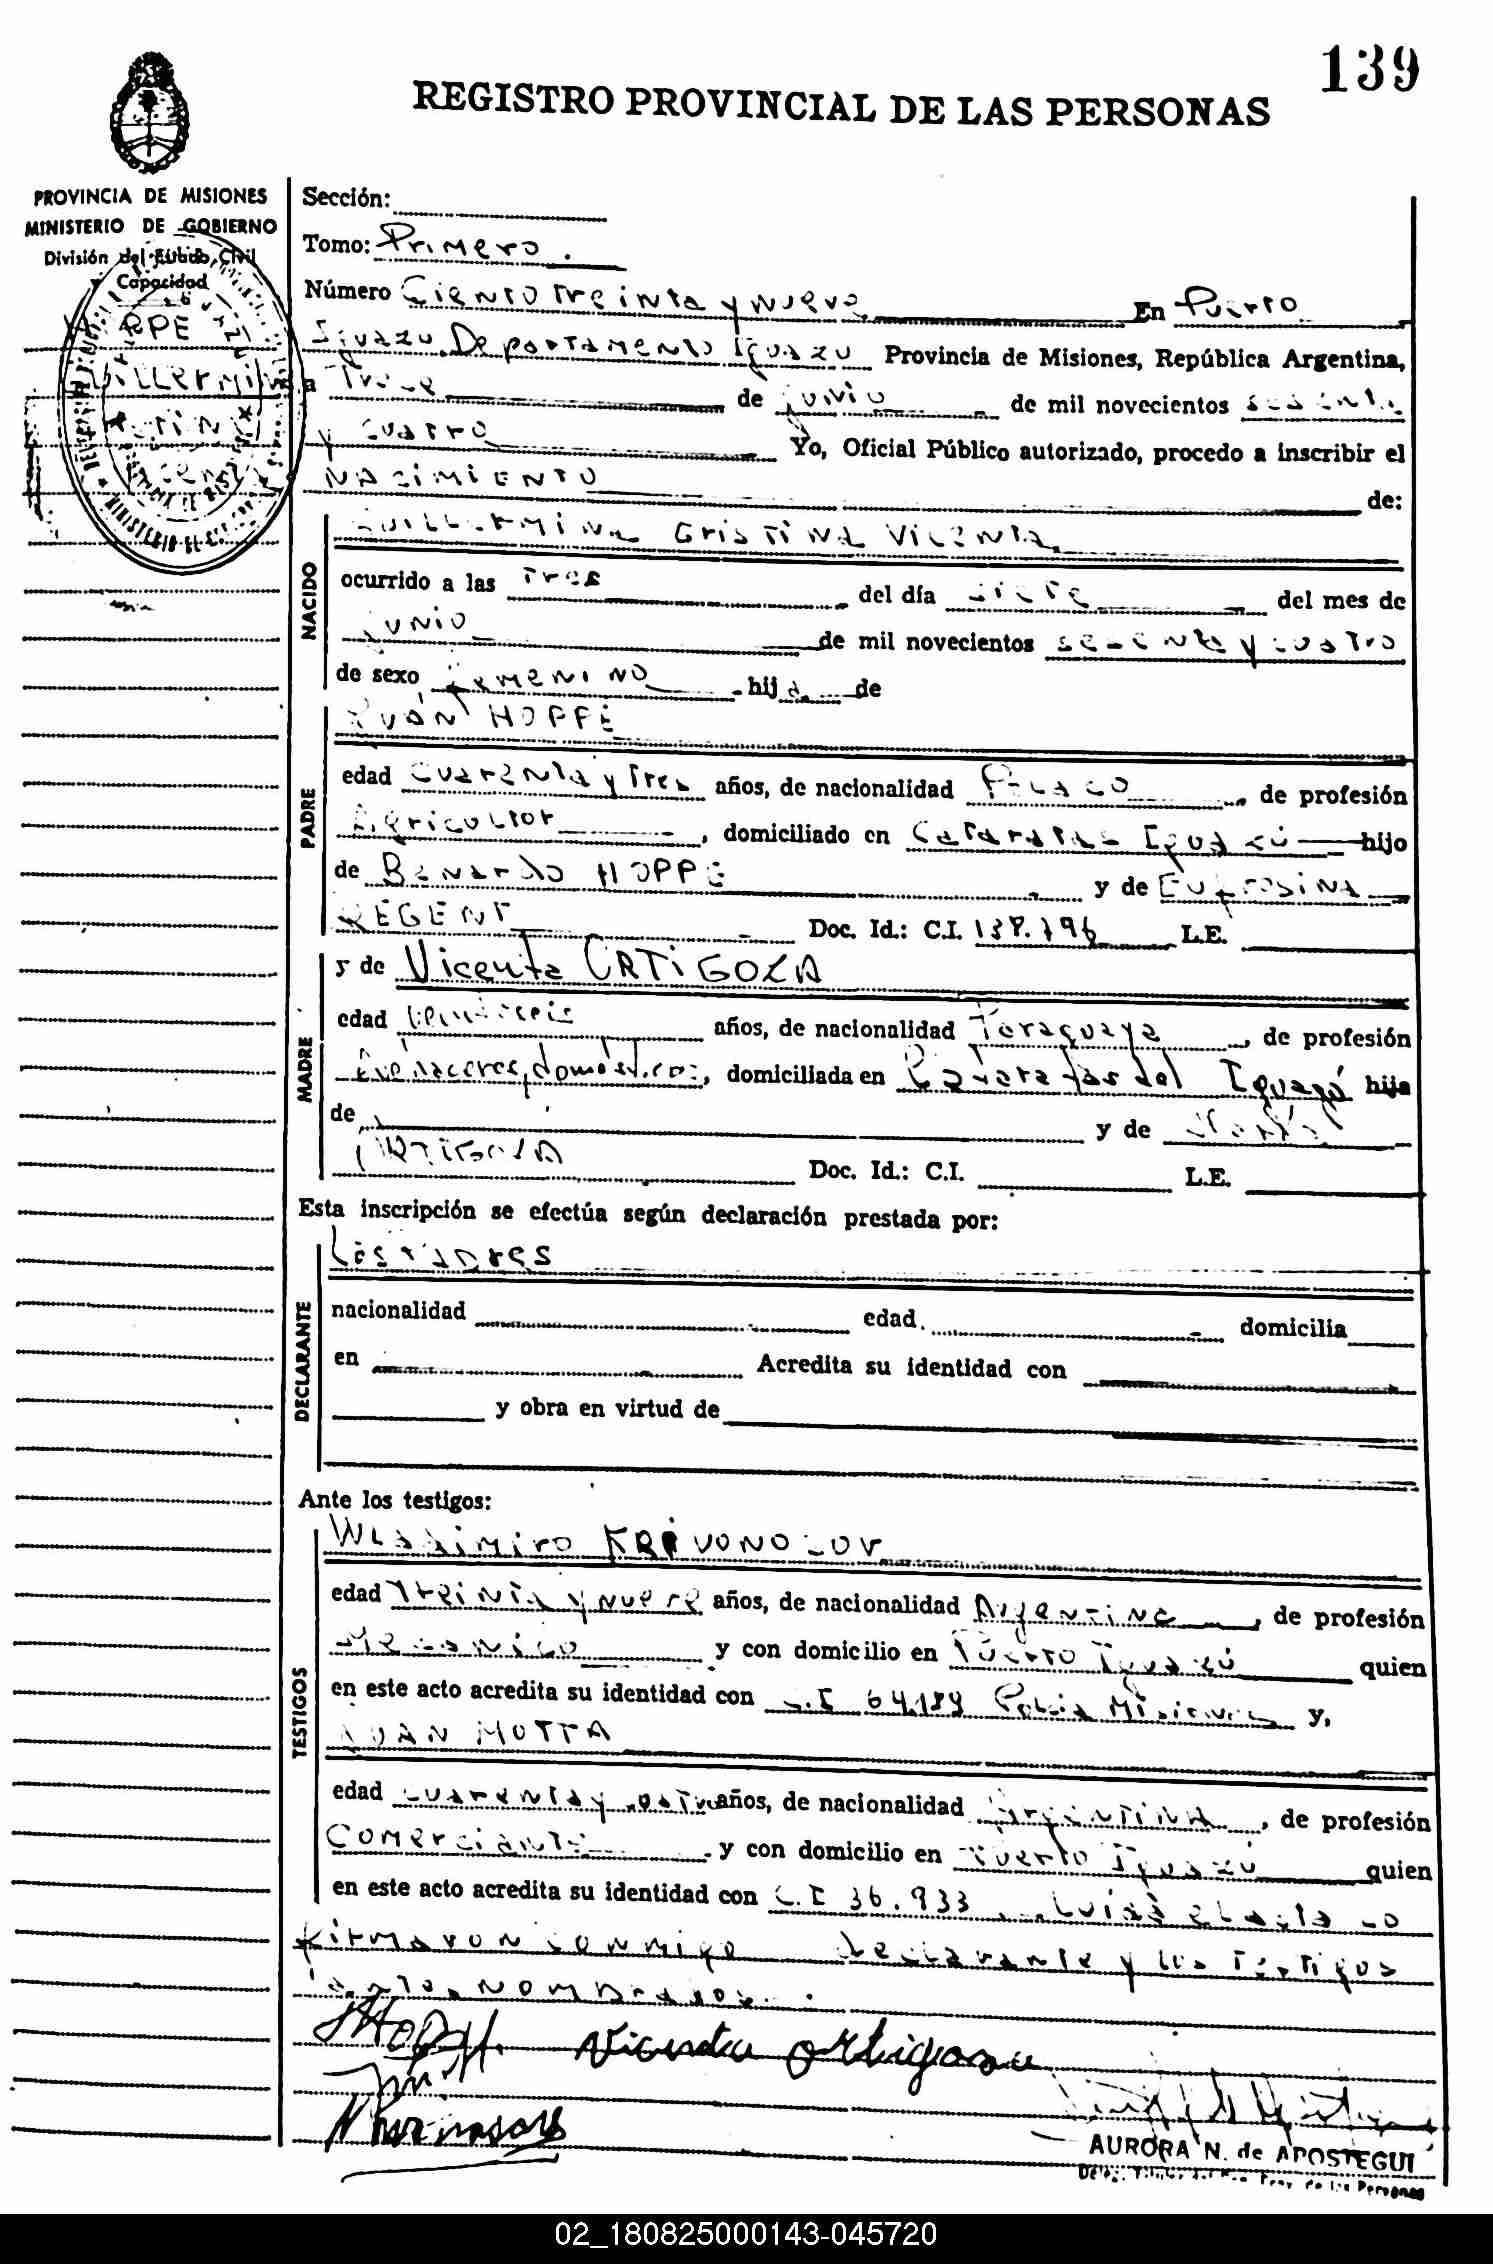 139
REGISTRO PROVINCIAL DE LAS PERSONAS
PROVINCIA DE MISIONES
MINISTERIO DE GOBIERNO
División del Estado Civil
Capacidad
Sección:
Tomo: Primero.
Número Ciento treinta y nueve En Puerto
Iguazu Departamento Iguazu Provincia de Misiones, República Argentina,
a Trece de junio de mil novecientos sesenta
y cuatro Yo, Oficial Público autorizado, procedo a inscribir el
NACIMIENTO de:
NACIDO
GUILLERMINA Cristina Vicenta
ocurrido a las tres del día siete del mes de
junio de mil novecientos sesenta y cuatro
de sexo Femenino hija de
PADRE
Juán HOPPE
edad Cuarenta y tres años, de nacionalidad Polaco, de profesión
Agricultor, domiciliado en Cataratas Iguazú hijo
de Bernardo HOPPE y de Eufrosina
REGENT Doc. Id.: C.I. L.E.
MADRE
y de Vicenta ORTIGOZA
edad veintiseis años, de nacionalidad Paraguaya, de profesión
domésticos, domiciliada en Cataratas del Iguazú hija
de y de
ORTIGOZA Doc. Id.: C.I. L.E.
Esta inscripción se efectúa según declaración prestada por:
DECLARANTE
Los Padres
nacionalidad edad. domicilia
en Acredita su identidad con
y obra en virtud de
Ante los testigos:
TESTIGOS
Wladimiro KRIVONOSOV
edad treinta y nueve años, de nacionalidad Argentina, de profesión
Mecanico y con domicilio en Puerto Iguazú quien
en este acto acredita su identidad con C.I 64.189 Policia Misiones y,
JUAN MOTTA
edad cuarenta y cuatro años, de nacionalidad Argentina, de profesión
Comerciante y con domicilio en Puerto Iguazú quien
en este acto acredita su identidad con C.I 36.933 el acta lo
firmaron conmigo declarante y los testigos
nombrados.
Vicenta Ortigosa
AURORA N. de APOSTEGUI
de las Personas
02_180825000143-045720